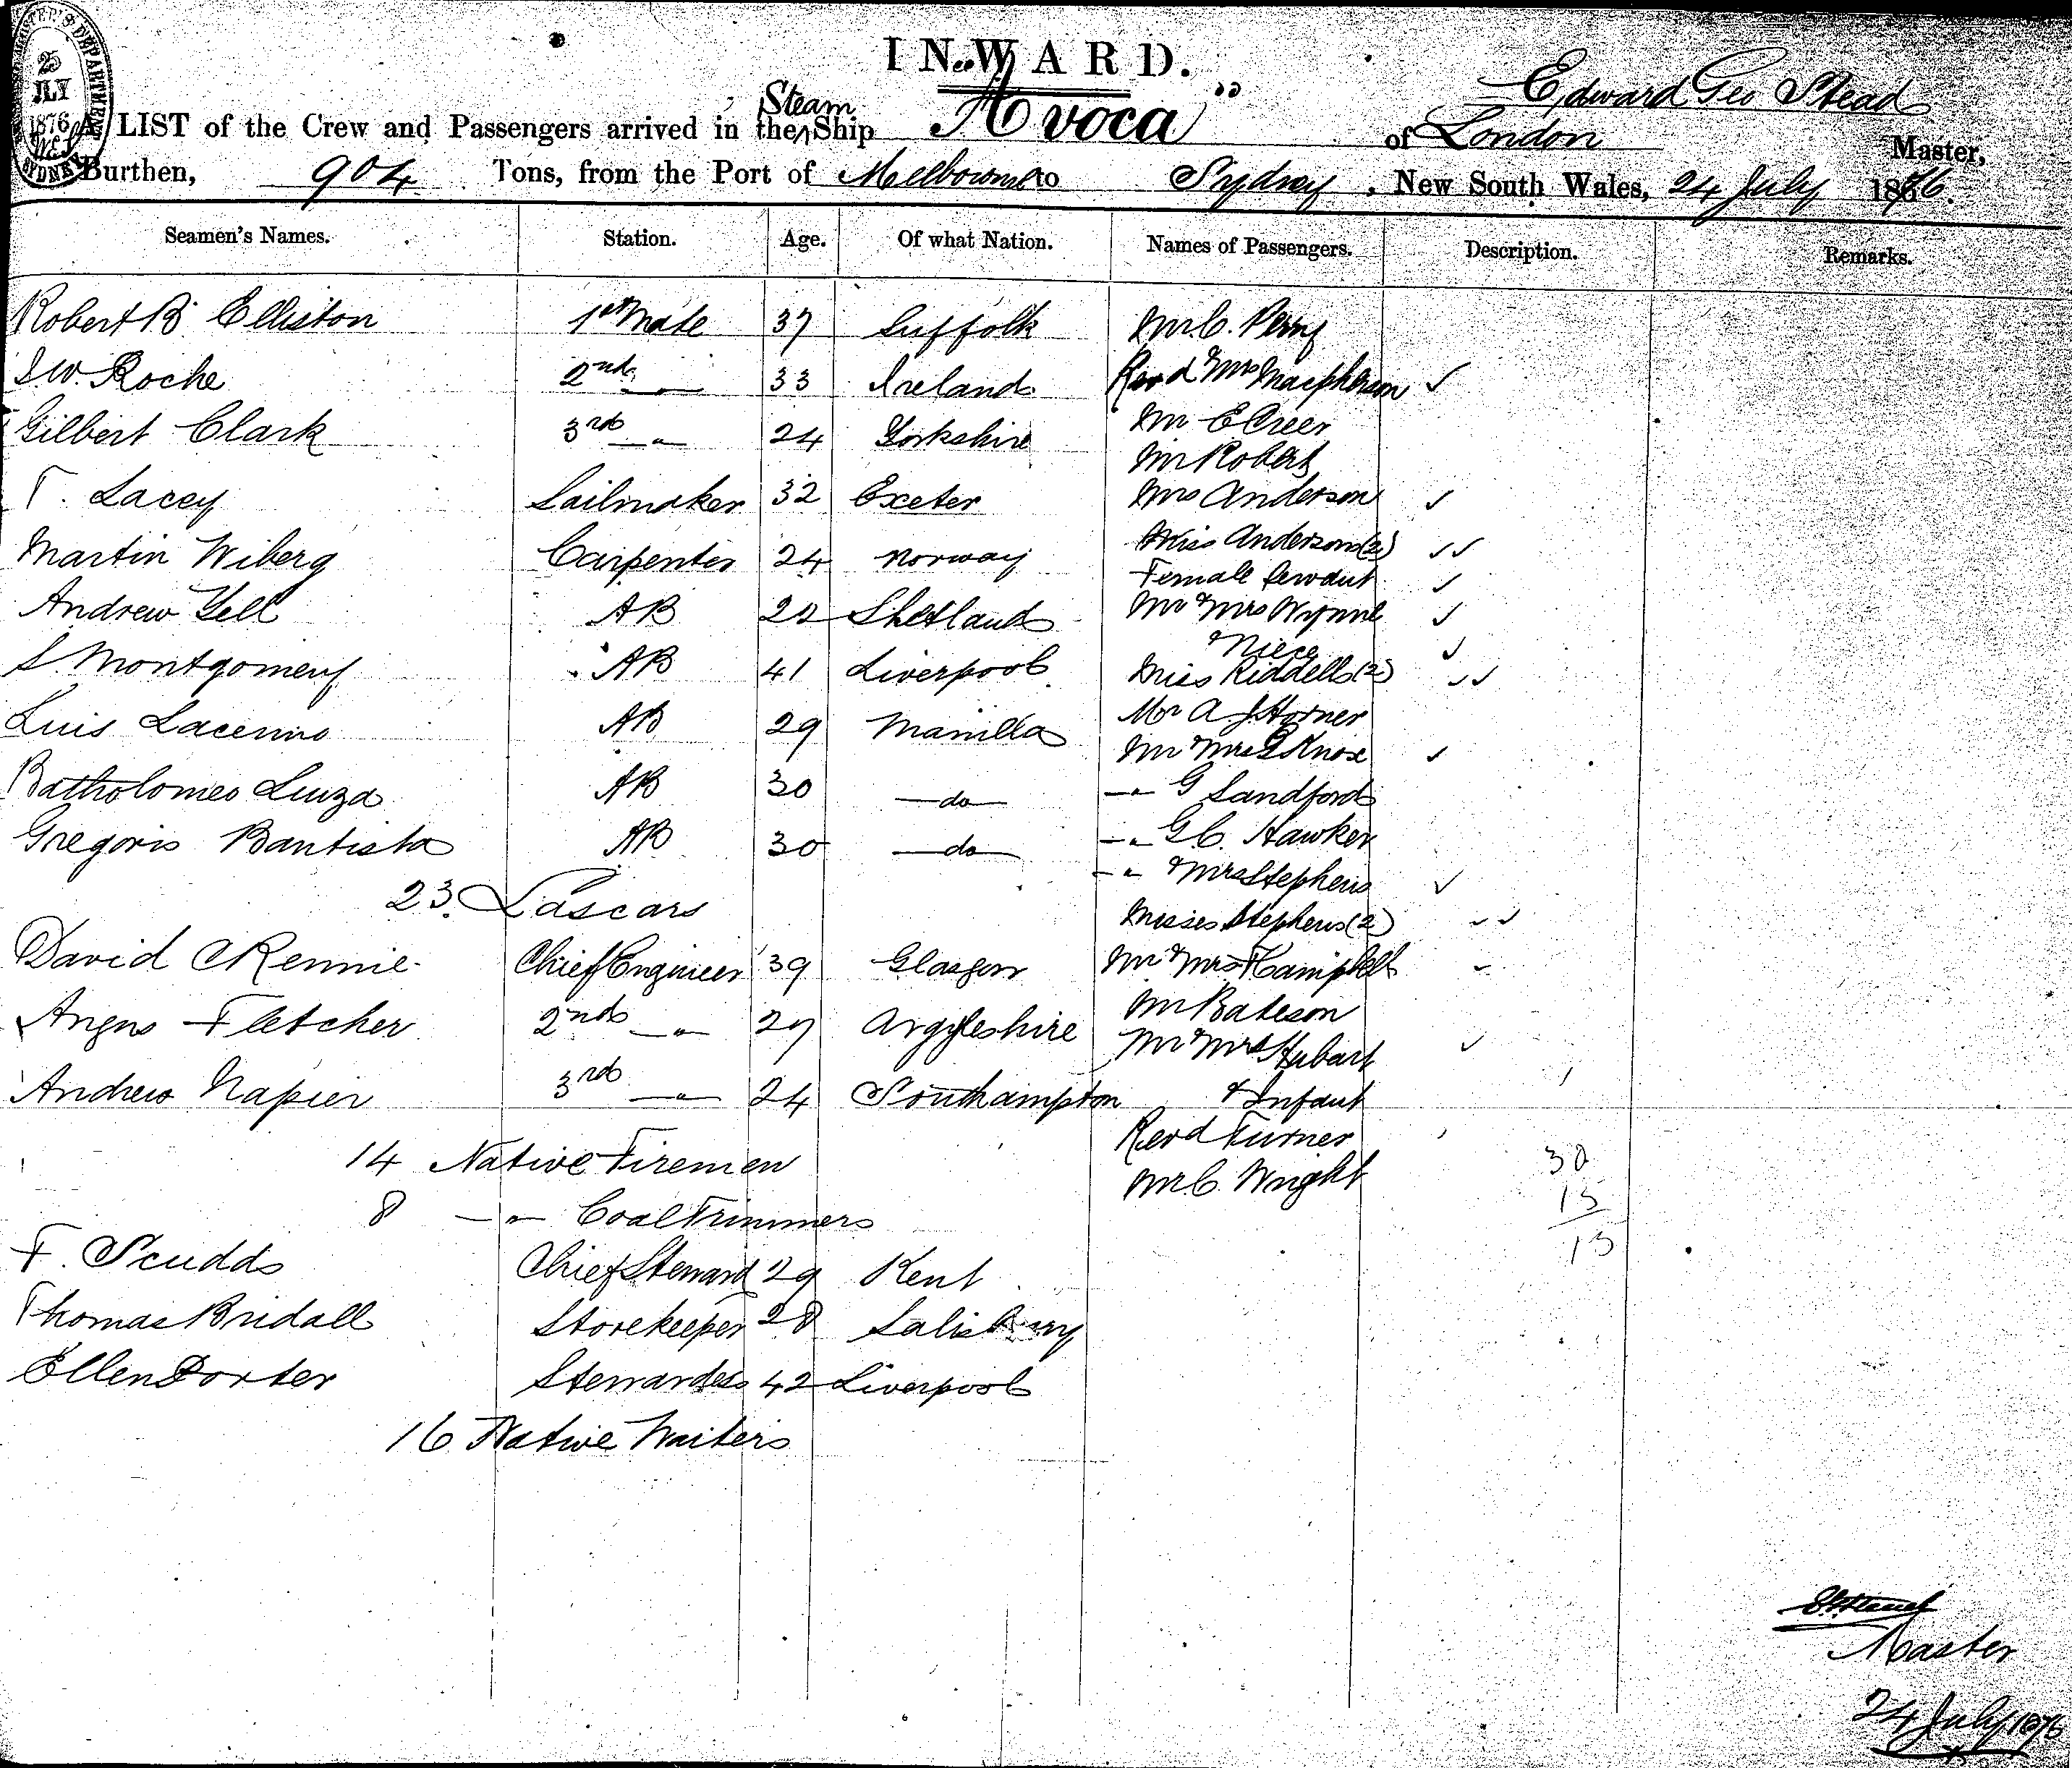 INWARD.
Edward Geo Stead
LIST of the Crew and Passengers arrived in the Steam Ship "Avoca" of London Master,
Burthen, 904 Tons, from the Port of Melbourne to Sydney, New South Wales, 24 July 1876.
Seamen's Names. Station. Age. Of what Nation. Names of Passengers. Description. Remarks.
Robert B Elliston 1st Mate 37 Suffolk Mr C. Perry
J W. Roche 2nd " 33 Ireland Revd & Mrs Macpherson ✓
Gilbert Clark 3rd " 24 Yorkshire Mr E Creer
Mr Robert
T. Lacey Sailmaker 32 Exeter Mrs Anderson ✓
Martin Wiberg Carpenter 24 Norway Miss Anderson (2) ✓✓
Female Servant ✓
Andrew Yell AB Shetland Mr & Mrs Wynne ✓
& Niece ✓
S. Montgomery AB 41 Liverpool Miss Riddells (2) ✓✓
Luis AB 29 Manilla Mr A J Horner
Mr & Mrs Knox ✓
Batholomeo Luiza AB 30 do " G Sandford
Gregoris Bantista AB 30 do " G C. Hawker
" & Mrs Stephens ✓
23. Lascars
Misses Stephens (2) ✓✓
David C Rennie Chief Engineer 39 Glasgow Mr & Mrs Campbell
Mr Bateson
Angus Fletcher 2nd " 27 Argyleshire Mr & Mrs Hubart ✓
Andrew Napier 3rd " 24 Southampton & Infant
Revd Turner
14 Native Firemen 30
Mr C. Wright 15
8 " Coal Trimmers
15
F. Scudds Chief Steward 29 Kent
Thomas Bridall Storekeeper 28 Salisbury
Ellen Porter Stewardess 42 Liverpool
16 Native Waiters
Master
24 July 1876
25
JLY
1876
SYDNEY